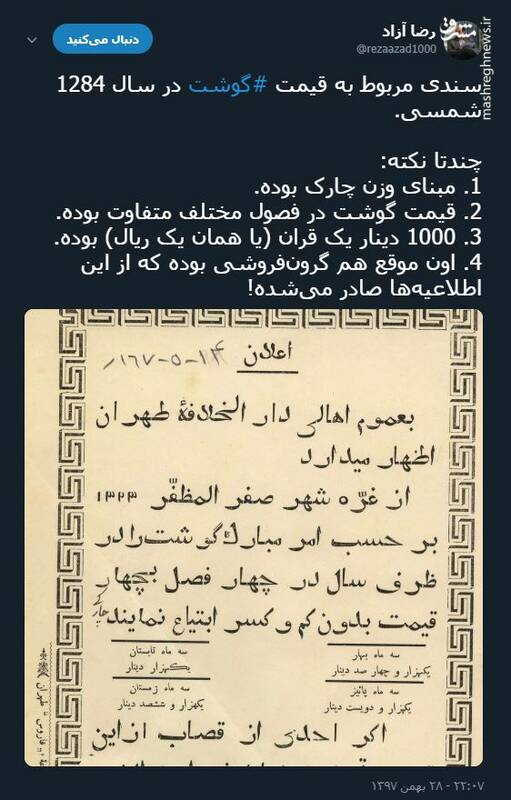 رضا آزاد
@rezaazad1000
دنبال می‌کنید
مشرق
mashreghnews.ir
سندی مربوط به قیمت #گوشت در سال 1284
شمسی.
چندتا نکته:
1. مبنای وزن چارک بوده.
2. قیمت گوشت در فصول مختلف متفاوت بوده.
3. 1000 دینار یک قران (یا همان یک ریال) بوده.
4. اون موقع هم گرون‌فروشی بوده که از این
اطلاعیه‌ها صادر می‌شده!
اعلان
۱۶۷-۵-۱۴
بعموم اهالی دار الخلافهٔ طهران
اظهار میدارد
از غرّه شهر صفر المظفّر ۱۳۲۳
بر حسب امر مبارك گوشت را در
ظرف سال در چهار فصل بچهار
قیمت بدون کم و کسر ابتیاع نمایند
چارکی
سه ماه بهار
یکهزار و چهار صد دینار
سه ماه تابستان
یکهزار دینار
سه ماه پائیز
یکهزار و دویست دینار
سه ماه زمستان
یکهزار و ششصد دینار
اکر احدی از قصاب ازاین
فاروس طهران
۲۲:۰۷ - ۲۸ بهمن ۱۳۹۷